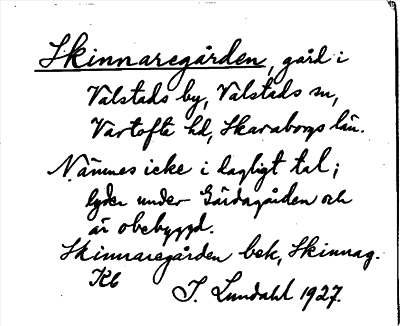 Skinnaregården, gård i
Valstads by, Valstads sn,
Vartofta hd, Skaraborgs län.
Nämnes icke i dagligt tal;
lyder under Gärdagården och
är obebyggd.
Skinnaregården bek, Skinnag.
Kb
J. Lundahl 1927.